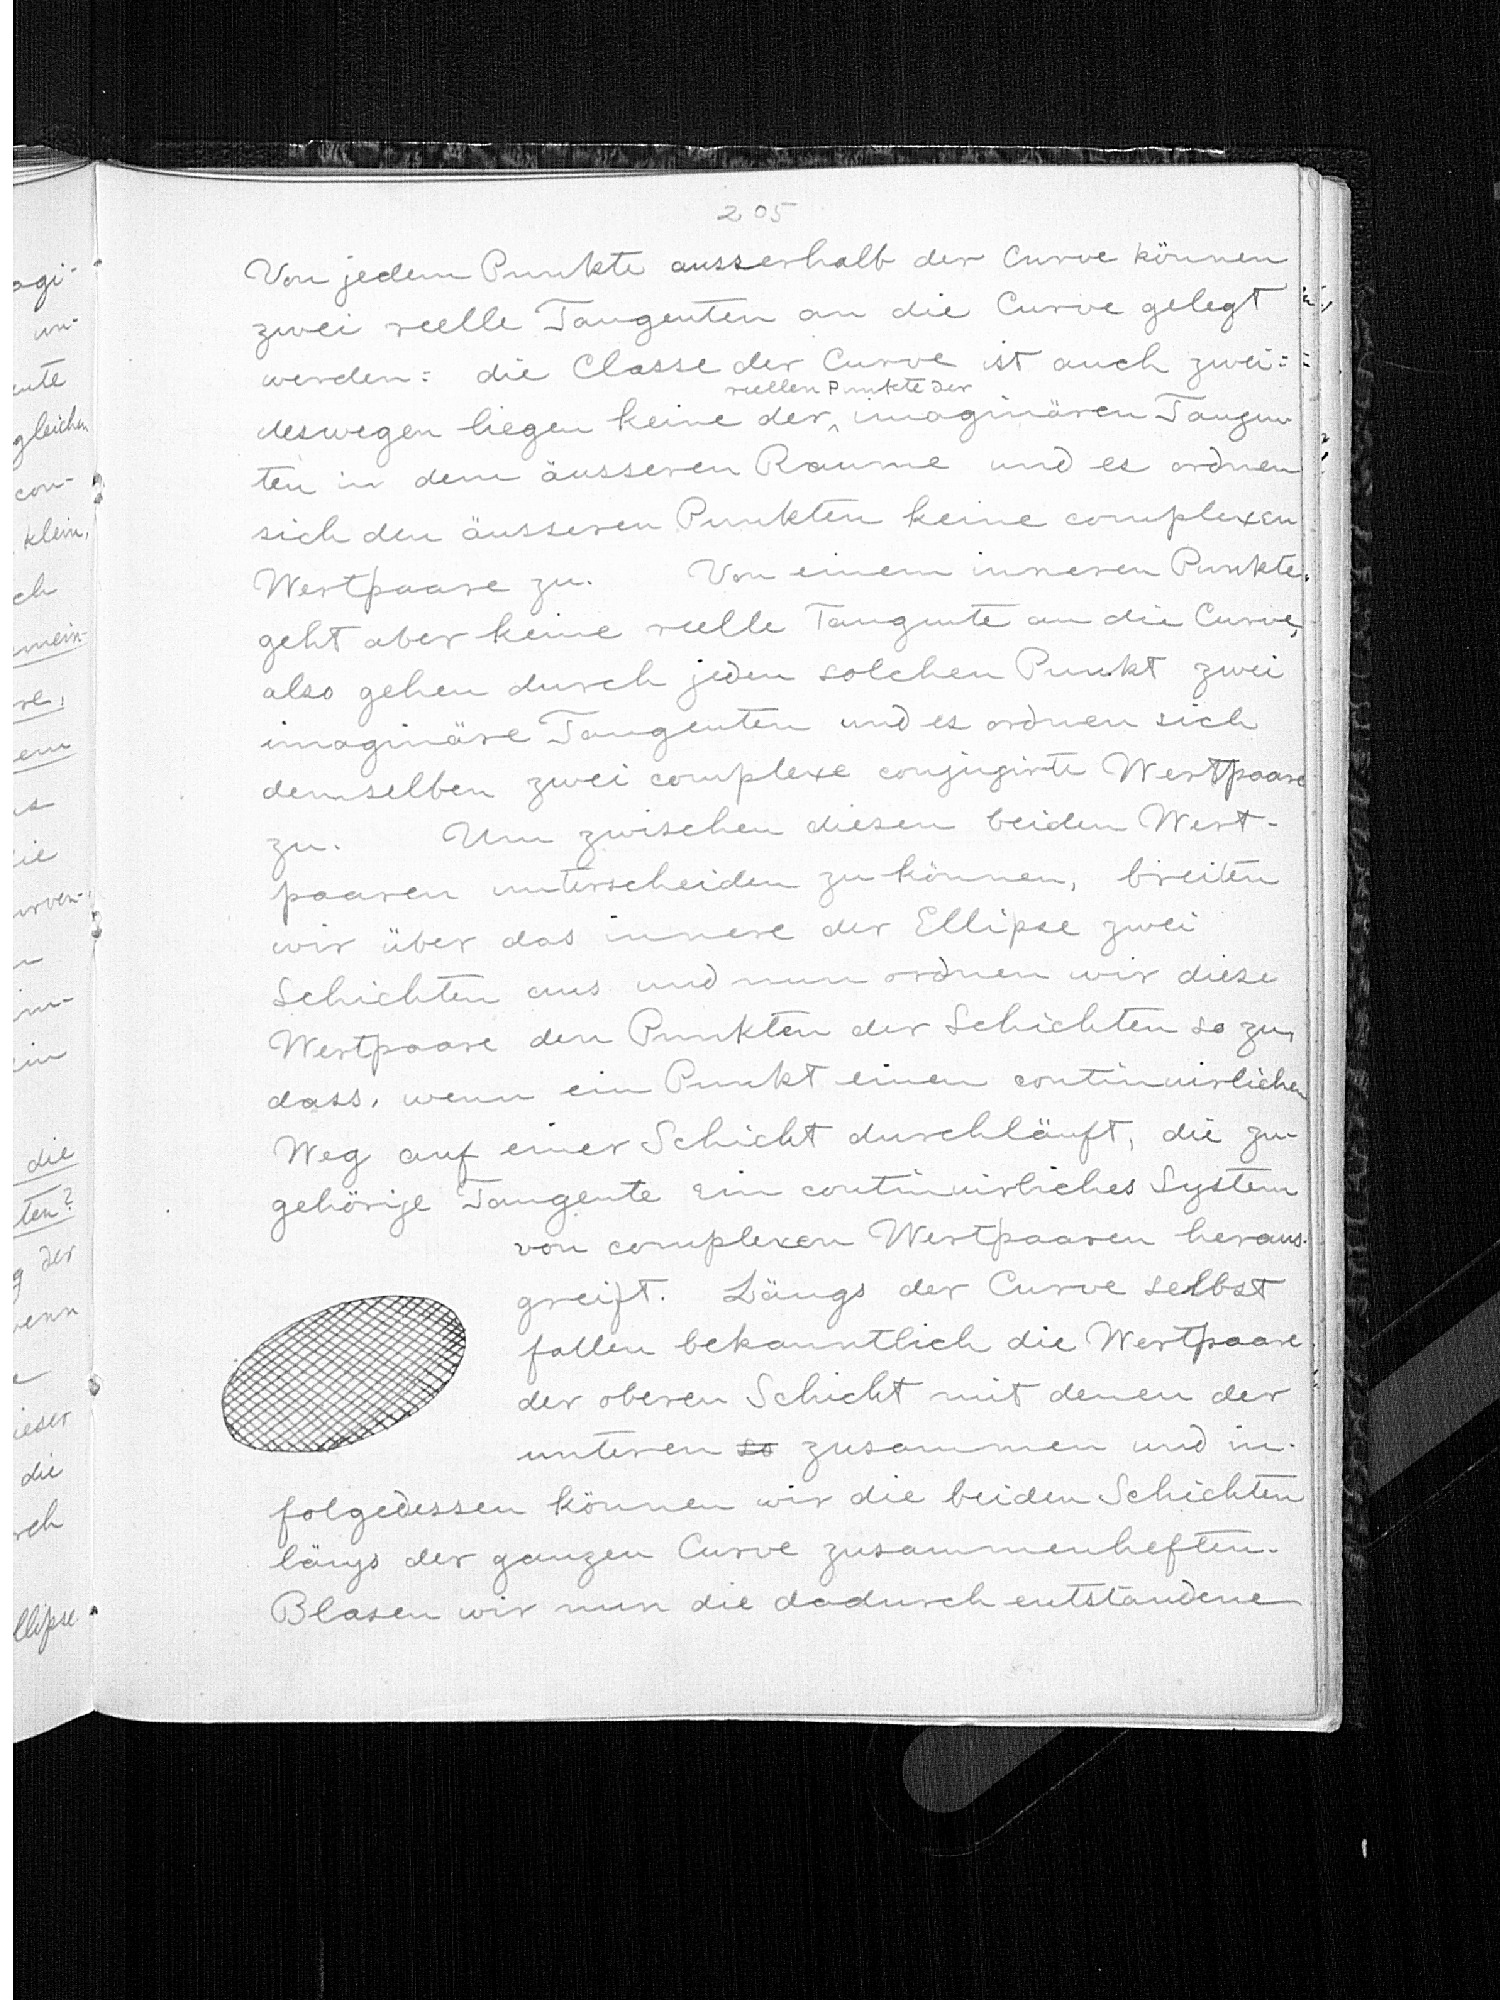 205
Von jedem Punkte ausserhalb der Curve können
zwei reelle Tangenten an die Curve gelegt
werden: die Classe der Curve ist auch zwei:
reellen Punkte der
deswegen liegen keine der imaginären Tangen
ten in dem äusseren Raume und es ordnen
sich den äusseren Punkten keine complexen
Wertpaare zu. Von einem inneren Punkte
geht aber keine reelle Tangente an die Curve,
also gehen durch jeden solchen Punkt zwei
imaginäre Tangenten und es ordnen sich
demselben zwei complexe conjugirte Wertpaare
zu. Um zwischen diesen beiden Wert-
paaren unterscheiden zu können, breiten
wir über das innere der Ellipse zwei
Schichten aus und nun ordnen wir diese
Wertpaare den Punkten der Schichten so zu,
dass, wenn ein Punkt einen continuirlichen
Weg auf einer Schicht durchläuft, die zu-
gehörige Tangente ein continuirliches System
von complexen Wertpaaren heraus-
greift. Längs der Curve selbst
fallen bekanntlich die Wertpaare
der oberen Schicht mit denen der
unteren so zusammen und in-
folgedessen können wir die beiden Schichten
längs der ganzen Curve zusammenheften.
Blasen wir nun die dadurch entstandene
agi-
un-
ente
gleichen
con-
klein,
ch
mein-
re,
em
die
urven-
im-
ein
die
ten?
der
wenn
ieser
die
rch
llipse